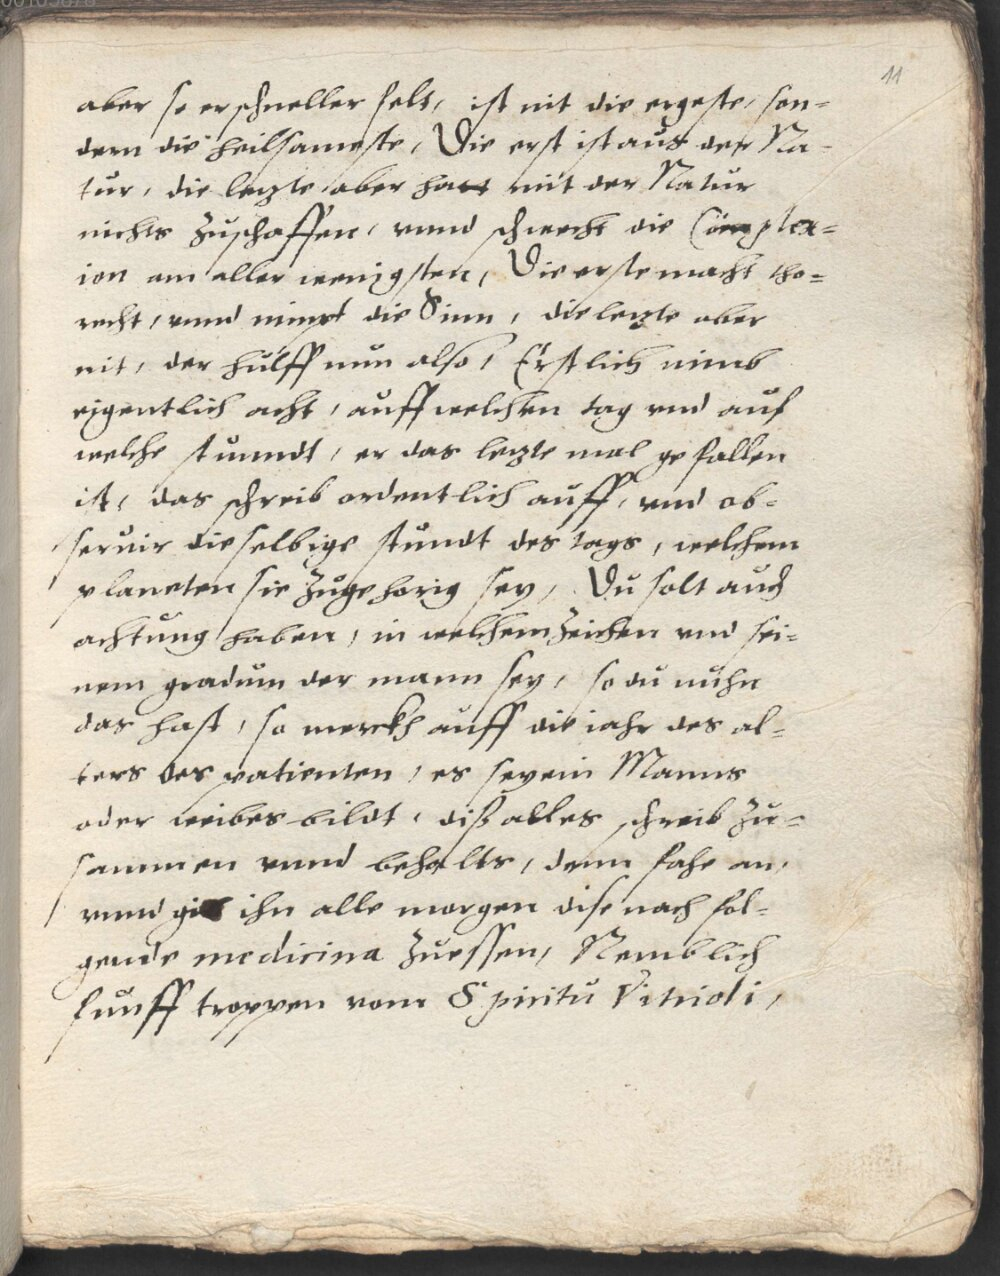 11
aber so er schneller felt, ist nit die ergeste, son-
dern die heilsameste, Die erst ist aus der Na-
tur, die letzte aber hatt mit der Natur
nichts zuschaffen, vnnd schwecht die Complex-
ion am aller wenigsten, Die erste macht tho-
recht, vnnd nimpt die Sinn, die letzte aber
nit, der hülff nun also, Erstlich nimb
eigentlich acht, auff welchen tag vnd auf
welche stunndt, er das letzte mal gefallen
ist, das schreib ordentlich auff, vnd ob-
seruir dieselbige stundt des tags, welchem
planeten sie zugehörig sey, Du solt auch
achtung haben, in welchem zeichen vnd sei-
nem gradum der mann sey, so du nuhn
das hast, so merckh auff die jahr des al-
ters des patienten, es sey ein Manns
oder weibes bildt, diß alles schreib zu-
sammen vnnd behalts, dann fahe an,
vnnd gib ihn alle morgen dise nach fol-
gende medicina zu essen, Nemblich
funff troppen vom Spiritu Vitrioli,